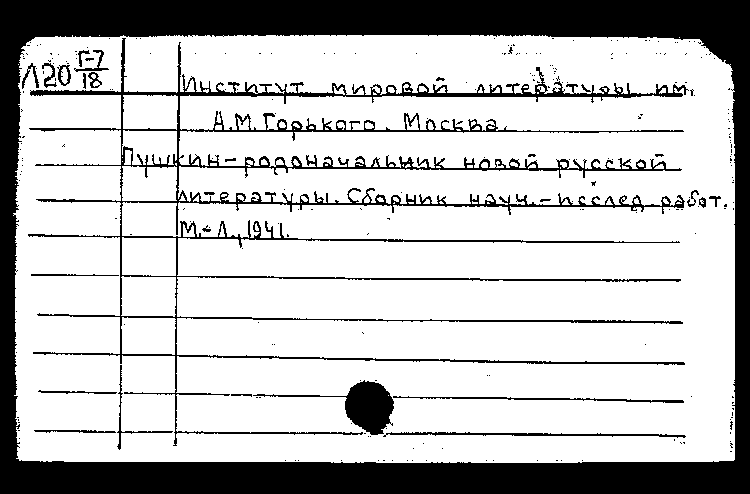 Л20 Г-7/18
Институт мировой литературы им.
А.М.Горького. Москва.
Пушкин-родоначальник новой русской
литературы. Сборник науч.-исслед. работ.
М.-Л., 1941.